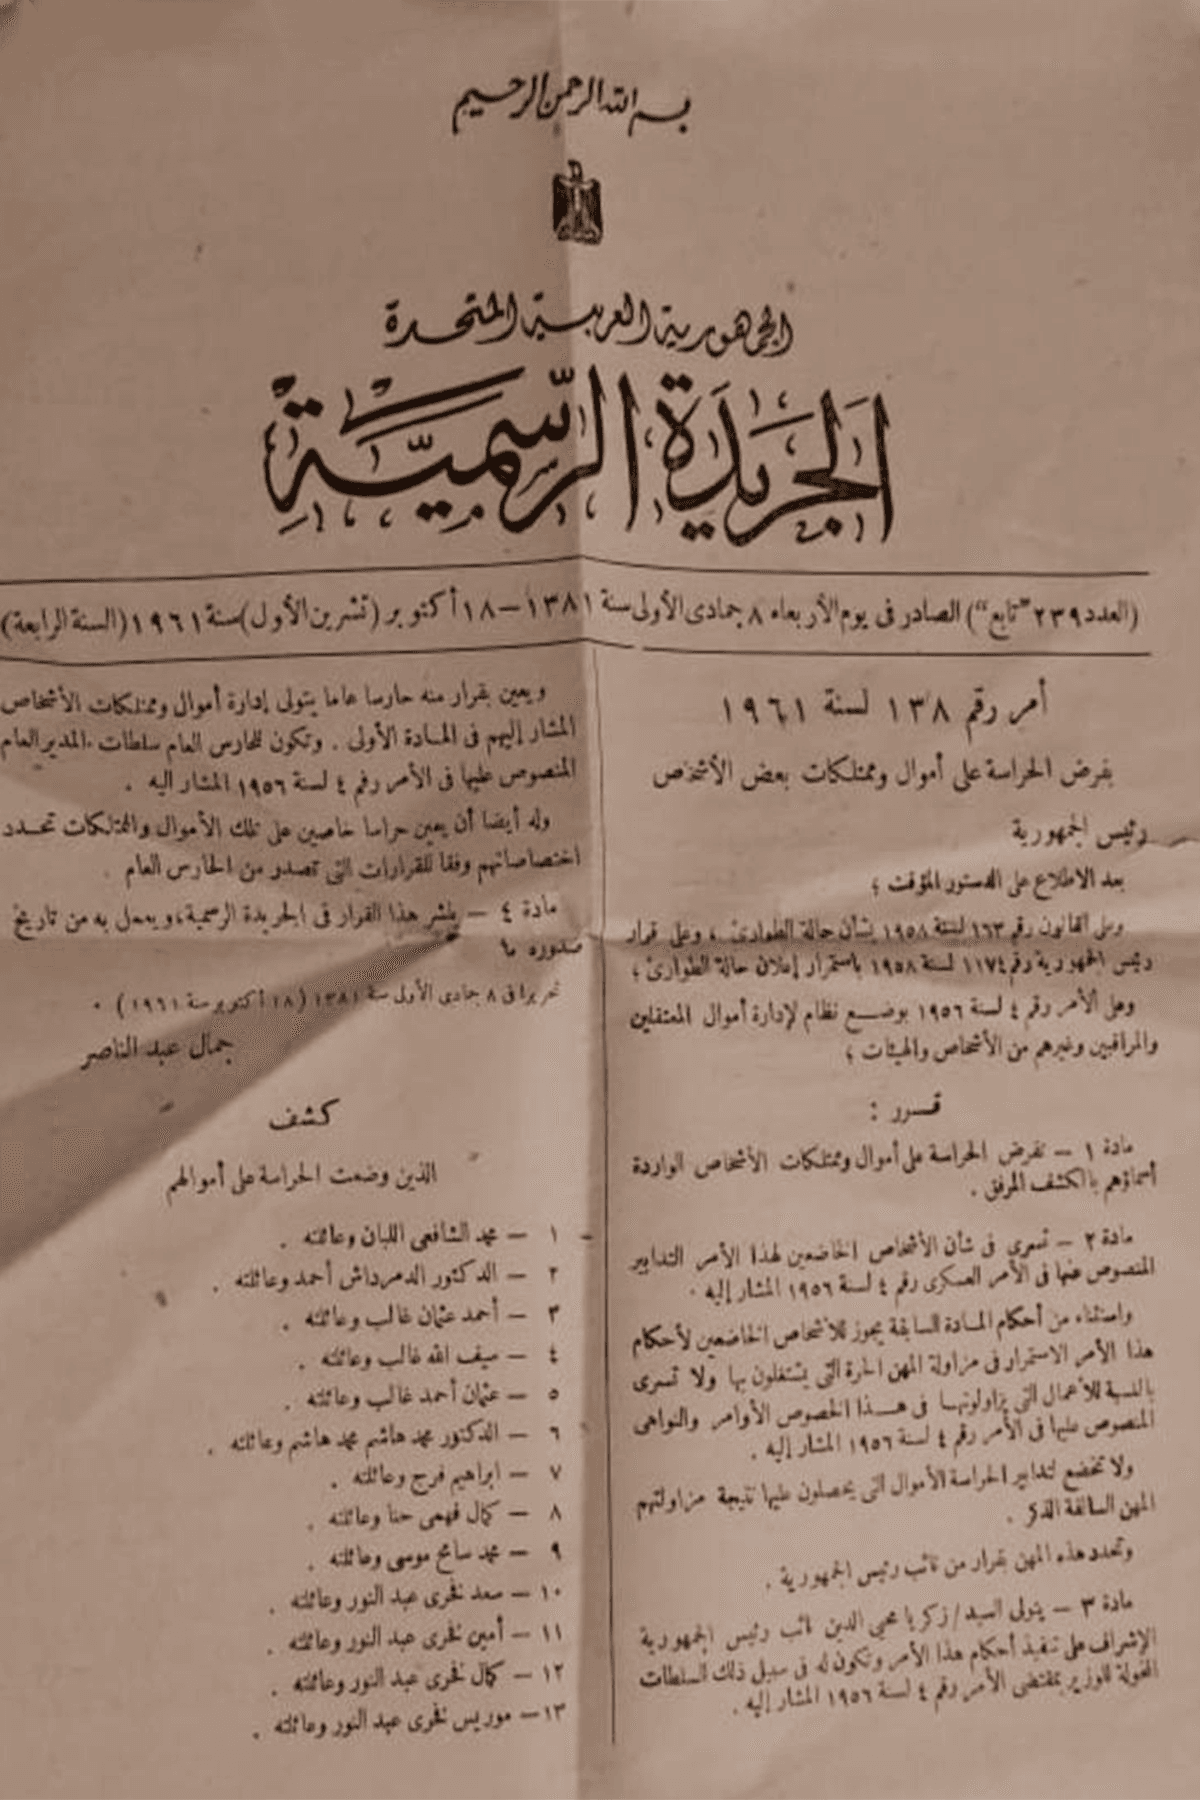 بسم الله الرحمن الرحيم
الجمهورية العربية المتحدة
الجَريدَة الرّسميَّة
(العدد ٢٣٩ "تابع") الصادر فى يوم الأربعاء ٨ جمادى الأولى سنة ١٣٨١ – ١٨ أكتوبر (تشرين الأول) سنة ١٩٦١ (السنة الرابعة)
أمر رقم ١٣٨ لسنة ١٩٦١
بفرض الحراسة على أموال وممتلكات بعض الأشخاص
رئيس الجمهورية
بعد الاطلاع على الدستور المؤقت ؛
وعلى القانون رقم ١٦٣ لسنة ١٩٥٨ بشأن حالة الطوارئ ، وعلى قرار
رئيس الجمهورية رقم ١١٧٤ لسنة ١٩٥٨ باستمرار إعلان حالة الطوارئ ؛
وعلى الأمر رقم ٤ لسنة ١٩٥٦ بوضع نظام لإدارة أموال المعتقلين
والمراقبين وغيرهم من الأشخاص والهيئات ؛
قرر :
مادة ١ – تفرض الحراسة على أموال وممتلكات الأشخاص الواردة
أسماؤهم بالكشف المرفق .
مادة ٢ – تسرى فى شأن الأشخاص الخاضعين لهذا الأمر التدابير
المنصوص عنها فى الأمر العسكرى رقم ٤ لسنة ١٩٥٦ المشار إليه .
واستثناء من أحكام المادة السابقة يجوز للأشخاص الخاضعين لأحكام
هذا الأمر الاستمرار فى مزاولة المهن الحرة التى يشتغلون بها ولا تسرى
بالنسبة للأعمال التى يزاولونها فى هذا الخصوص الأوامر والنواهى
المنصوص عليها فى الأمر رقم ٤ لسنة ١٩٥٦ المشار إليه .
ولا تخضع لتدابير الحراسة الأموال التى يحصلون عليها نتيجة مزاولتهم
المهن السالفة الذكر .
وتحدد هذه المهن بقرار من نائب رئيس الجمهورية .
مادة ٣ – يتولى السيد/ زكريا محيى الدين نائب رئيس الجمهورية
الإشراف على تنفيذ أحكام هذا الأمر وتكون له فى سبيل ذلك السلطات
المخولة للوزير بمقتضى الأمر رقم ٤ لسنة ١٩٥٦ المشار إليه .
ويعين بقرار منه حارسا عاما يتولى إدارة أموال وممتلكات الأشخاص
المشار إليهم فى المادة الأولى . وتكون للحارس العام سلطات المدير العام
المنصوص عليها فى الأمر رقم ٤ لسنة ١٩٥٦ المشار اليه .
وله أيضا أن يعين حراسا خاصين على تلك الأموال والممتلكات تحدد
اختصاصاتهم وفقا للقرارات التى تصدر من الحارس العام .
مادة ٤ – ينشر هذا القرار فى الجريدة الرسمية، ويعمل به من تاريخ
صدوره
تحريرا فى ٨ جمادى الأولى سنة ١٣٨١ (١٨ أكتوبر سنة ١٩٦١) .
جمال عبد الناصر
كشف
الذين وضعت الحراسة على أموالهم
١ – محمد الشافعى اللبان وعائلته .
٢ – الدكتور الدمرداش أحمد وعائلته .
٣ – أحمد عثمان غالب وعائلته .
٤ – سيف الله غالب وعائلته .
٥ – عثمان أحمد غالب وعائلته .
٦ – الدكتور محمد هاشم محمد هاشم وعائلته .
٧ – ابراهيم فرج وعائلته .
٨ – كمال فهمى حنا وعائلته .
٩ – محمد سامح موسى وعائلته .
١٠ – سعد فخرى عبد النور وعائلته .
١١ – أمين فخرى عبد النور وعائلته .
١٢ – كمال فخرى عبد النور وعائلته .
١٣ – موريس فخرى عبد النور وعائلته .